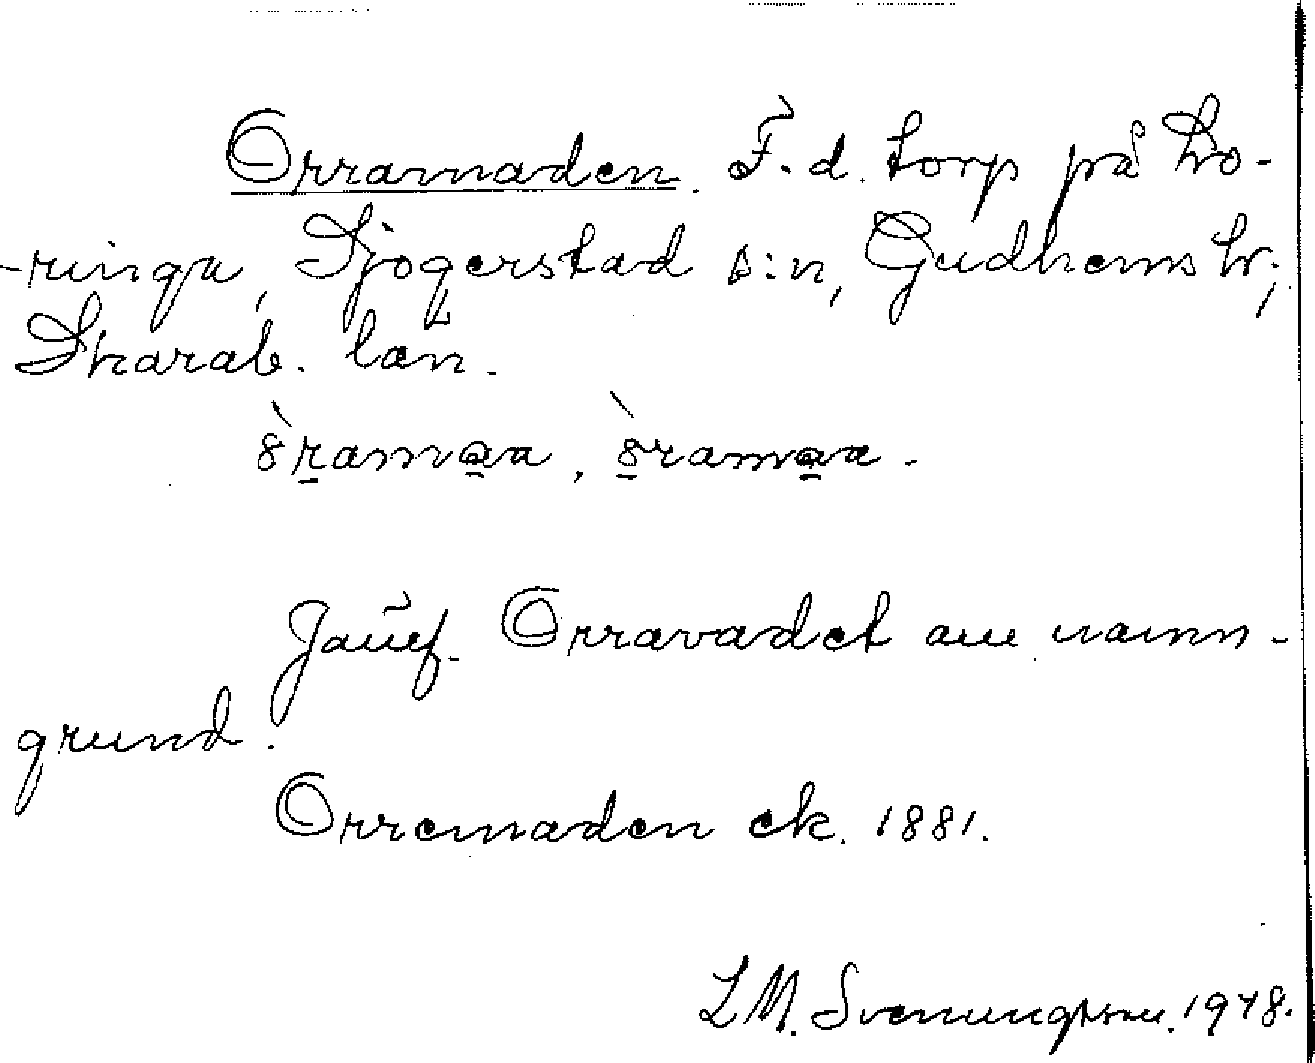 Orramaden. F. d. torp på Ho-
-ringa, Sjogerstad s:n, Gudhems hr;
Skarab. län.
Jämf. Orravadet om namn-
grund.
Orremaden ek. 1881.
L M. Svenungsson. 1948.